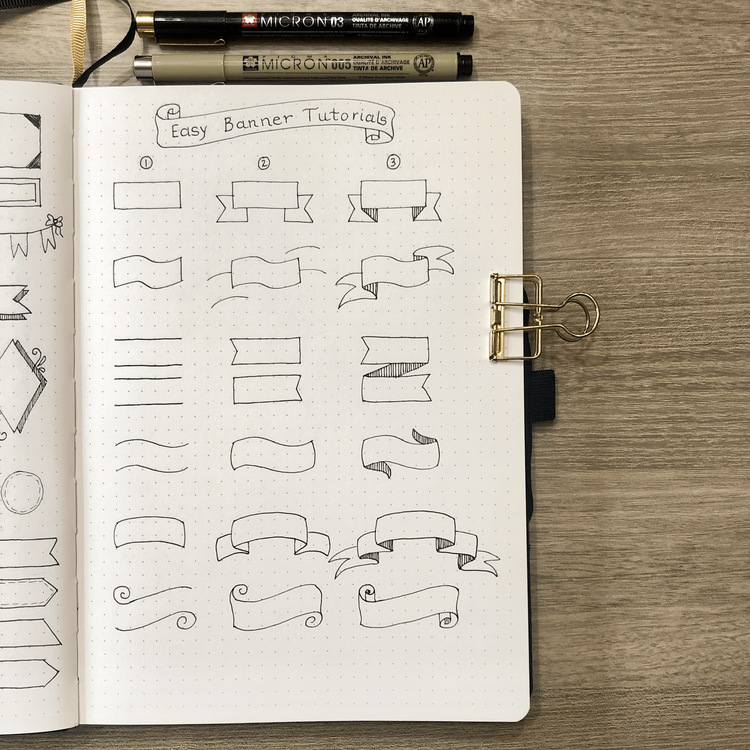 MICRON 03 ARCHIVAL INK
QUALITÉ D'ARCHIVAGE
TINTA DE ARCHIVE
AP
MICRON 005 ARCHIVAL INK
QUALITÉ D'ARCHIVAGE
TINTA DE ARCHIVE
AP
Easy Banner Tutorials
1 2 3